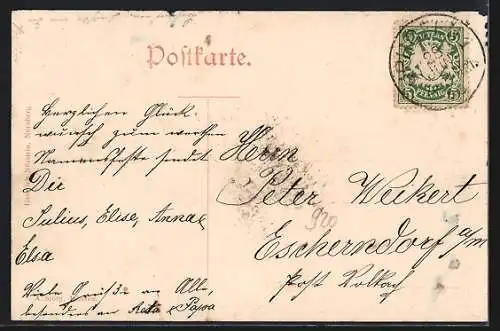 Postkarte.
BAYERN
5 5
PFENNIG
Herzlichen Glück-
wunsch zum werthen
Namensfeste sendet
Die
Julius, Elise, Anna &
Elsa
Viele Grüße an Alle,
besonders an &  Papa
Herrn
Peter Weikert
Escherndorf a/m
Post Volkach